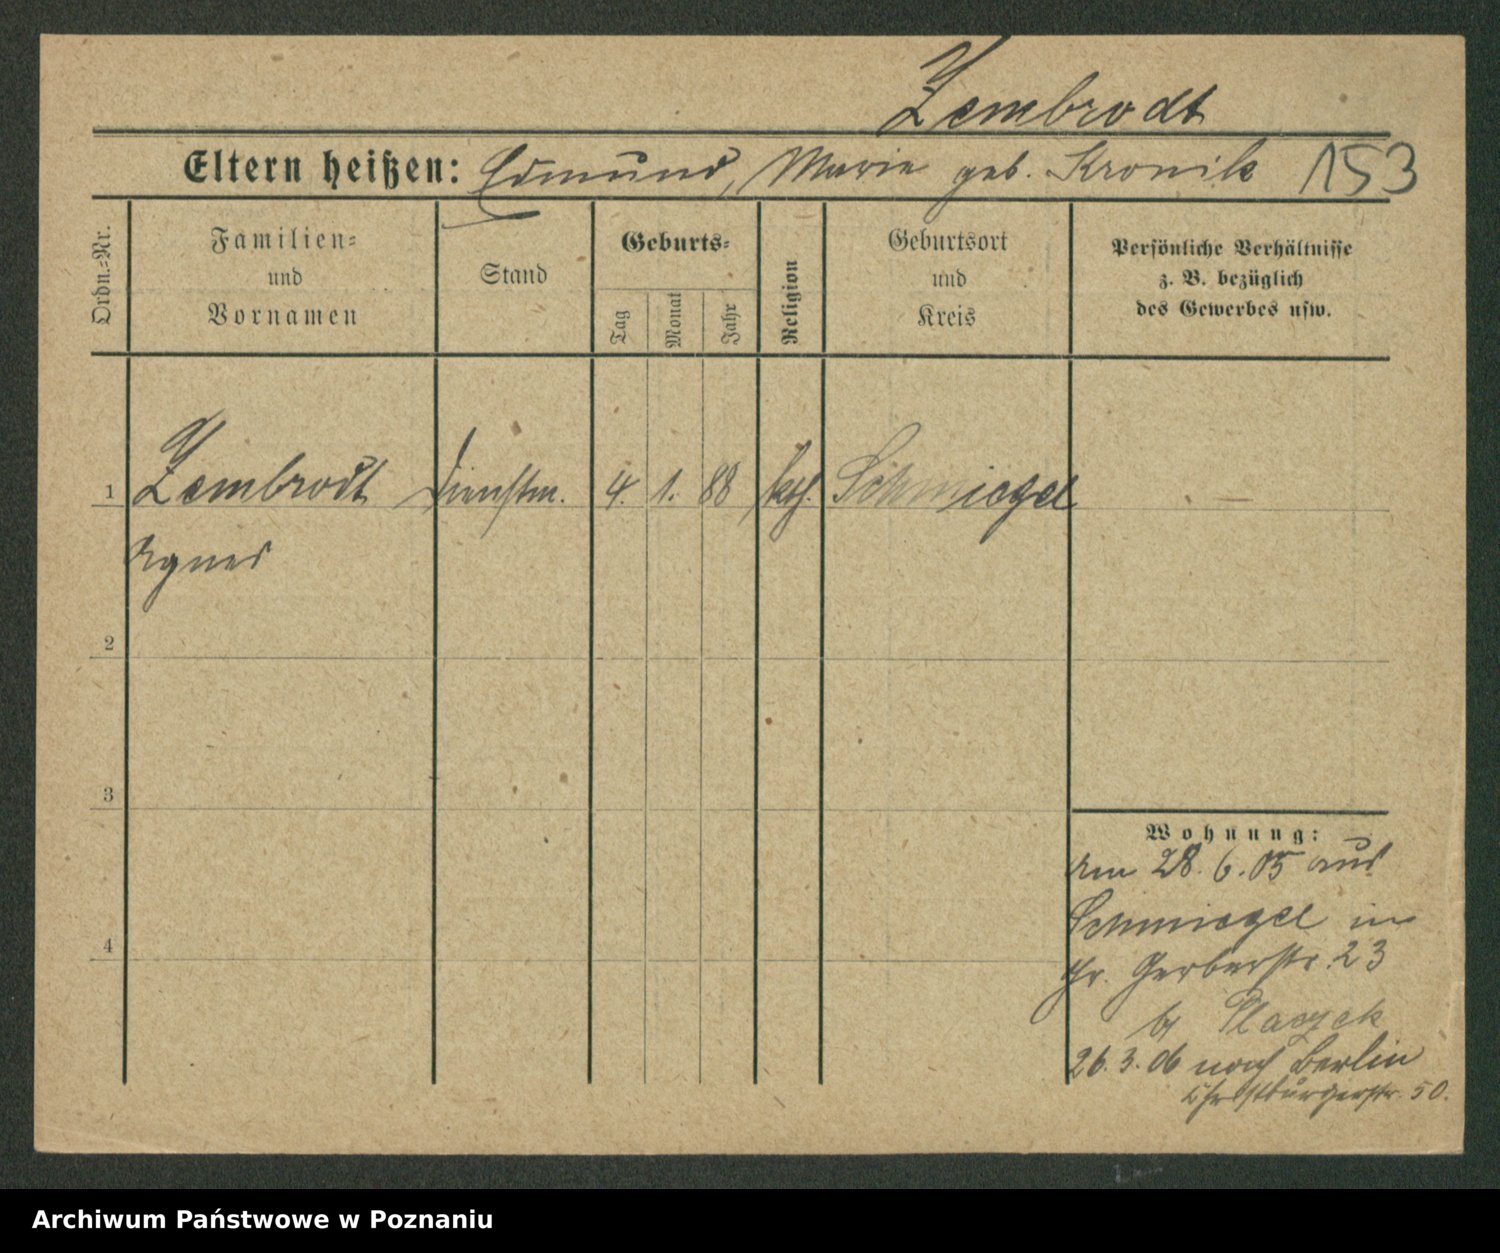 Zembrodt
Eltern heißen: Edmund, Marie geb. Kronik 153
Ordn.=Nr.
Familien=
und
Vornamen
Stand
Geburts=
Tag
Monat
Jahr
Religion
Geburtsort
und
Kreis
Persönliche Verhältnisse
z. B. bezüglich
des Gewerbes usw.
1 Zembrodt Dienstm. 4. 1. 88 kath. Schmiegel —
Agnes
2
3
4
Wohnung:
Am 28. 6. 05 aus
Schmiegel in
Gr. Gerberstr. 23
bei Placzek
26. 3. 06 nach Berlin
Christburgerstr. 50.
Archiwum Państwowe w Poznaniu